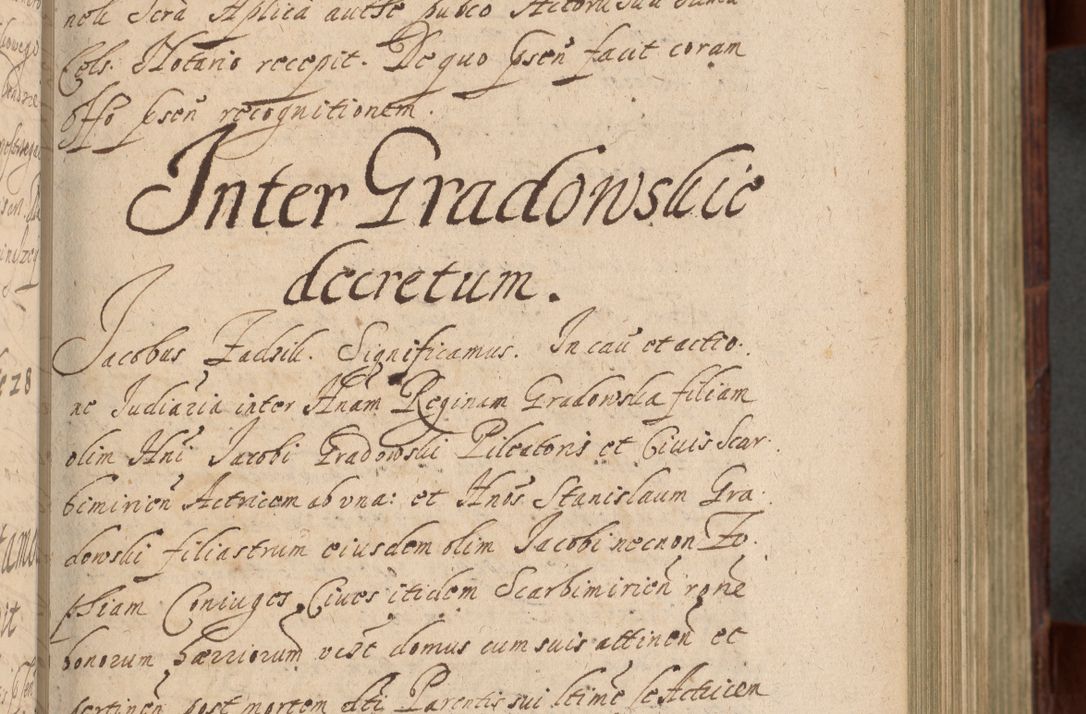 Cels. Notario recepit. De quo psen̄ facit coram
Offo psen̄ recognitionem.
Inter Gradowskie
decretum.
Jacobus Zadzik. Significamus. In cau̅ et actio.
ne Judiaria inter Hn̄am Reginam Gradowska filiam
olim Hn̄i Jacobi Gradowski Pileatoris et Ciuis Scar.
bimirien̄ Actricem ab vna: et Hn̄os Stanislaum Gra.
dowski filiastrum eiusdem olim Jacobi necnon Zo.
phiam Coniuges Ciues itidem Scarbimirien̄ rōne
bonorum hærriorum vidt domus cum suis attinen̄ et
pertinen̄ post mortem dti Parentis sui ltime se Actricen